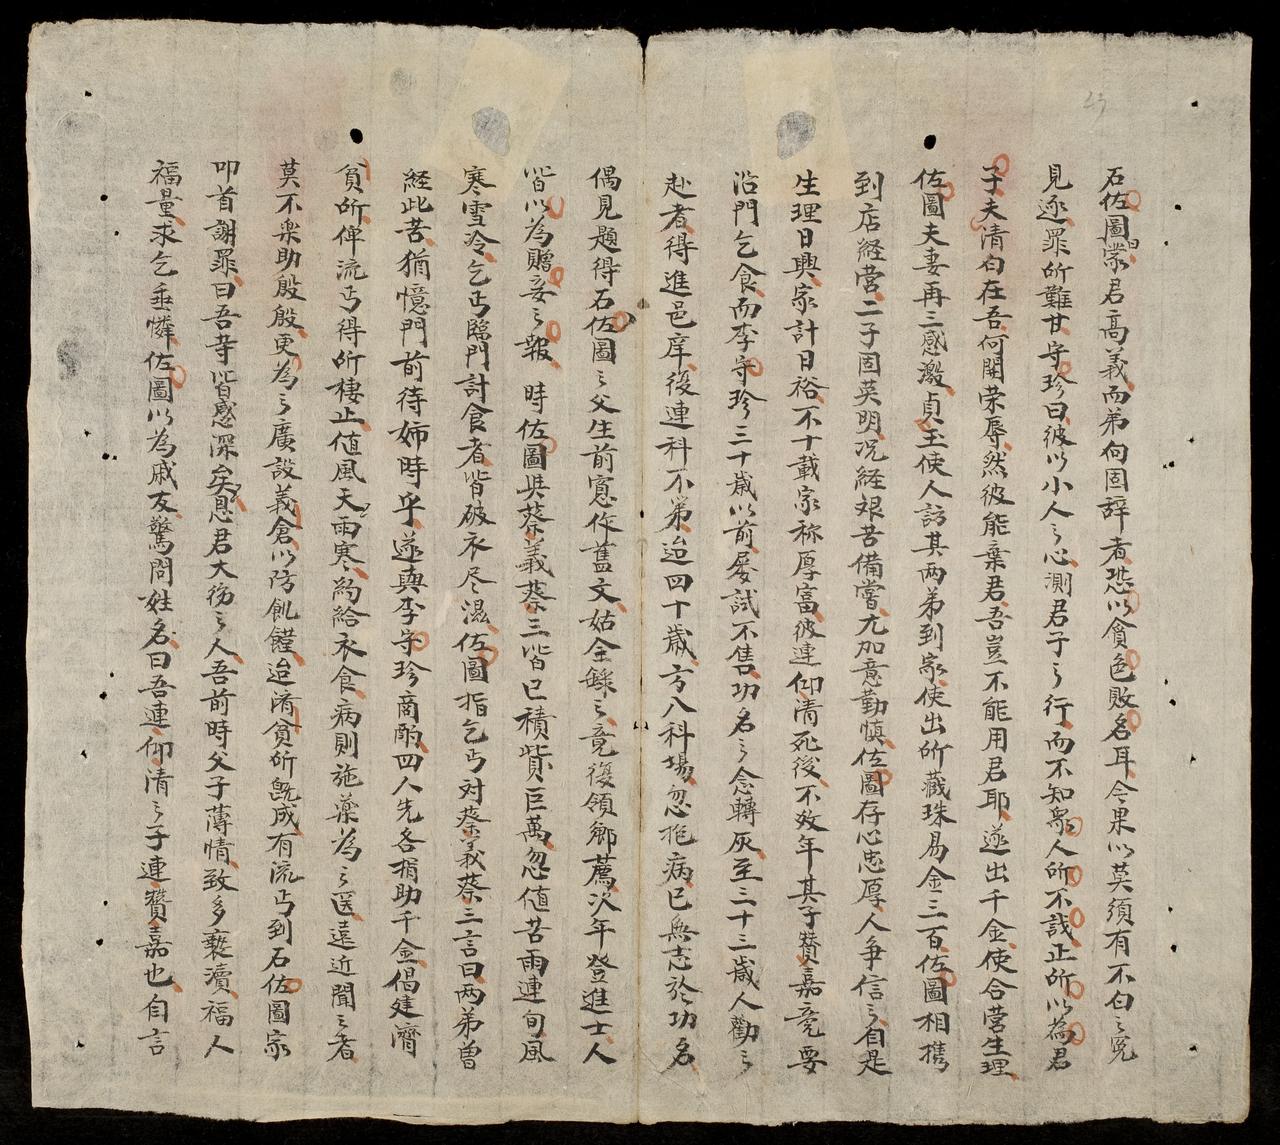 石佐圖蒙君高義而弟向固辞者恐以貪色敗名耳今果以莫須有不白之冤
見逐罪所難甘守珍曰彼以小人之心測君子之行而不知衆人所不識正所以為君
子夫清白在吾何関荣辱然彼能棄君吾豈不能用君耶遂出千金使合营生理
佐圖夫妻再三感激貞玉使人訪其两弟到家使出所藏珠易金三百佐圖相携
到店経营二子固英明况経艰苦備嘗尤加意勤慎佐圖存心忠厚人争信之自是
生理日興家計日裕不十載家称厚富彼連仰清死後不数年其子賛嘉竟要
沿門乞食而李守珍三十歳以前屡試不售功名之念轉灰至三十三歳人勸之
赴者得進邑庠後連科不第迨四十歳方八科場忽抱病已無志於功名
偶見題得石佐圖之父生前窓作舊文姑全録之竟復領鄉薦次年登進士人
皆以為贈妾之報 時佐圖與蔡義蔡三皆已積貲巨萬忽値苦雨連旬風
寒雪冷乞丐臨門討食者皆破衣尽濕佐圖指乞丐对蔡義蔡三言曰两弟曽
経此苦猶憶門前待姉時乎遂與李守珍商酌四人先各捐助千金倡建濟
貧所俾流丐得所棲止値風天雨寒約給衣食病則施藥為之医遠近聞之者
莫不樂助殷殷更為之廣設義倉以防飢饉迨濟貧所既成有流丐到石佐圖家
叩首謝罪曰吾等皆感深矣恩君大徳之人吾前時父子薄情致多褻瀆福人
福量求乞垂憐佐圖以為戚友驚問姓名曰吾連仰清之子連賛嘉也自言